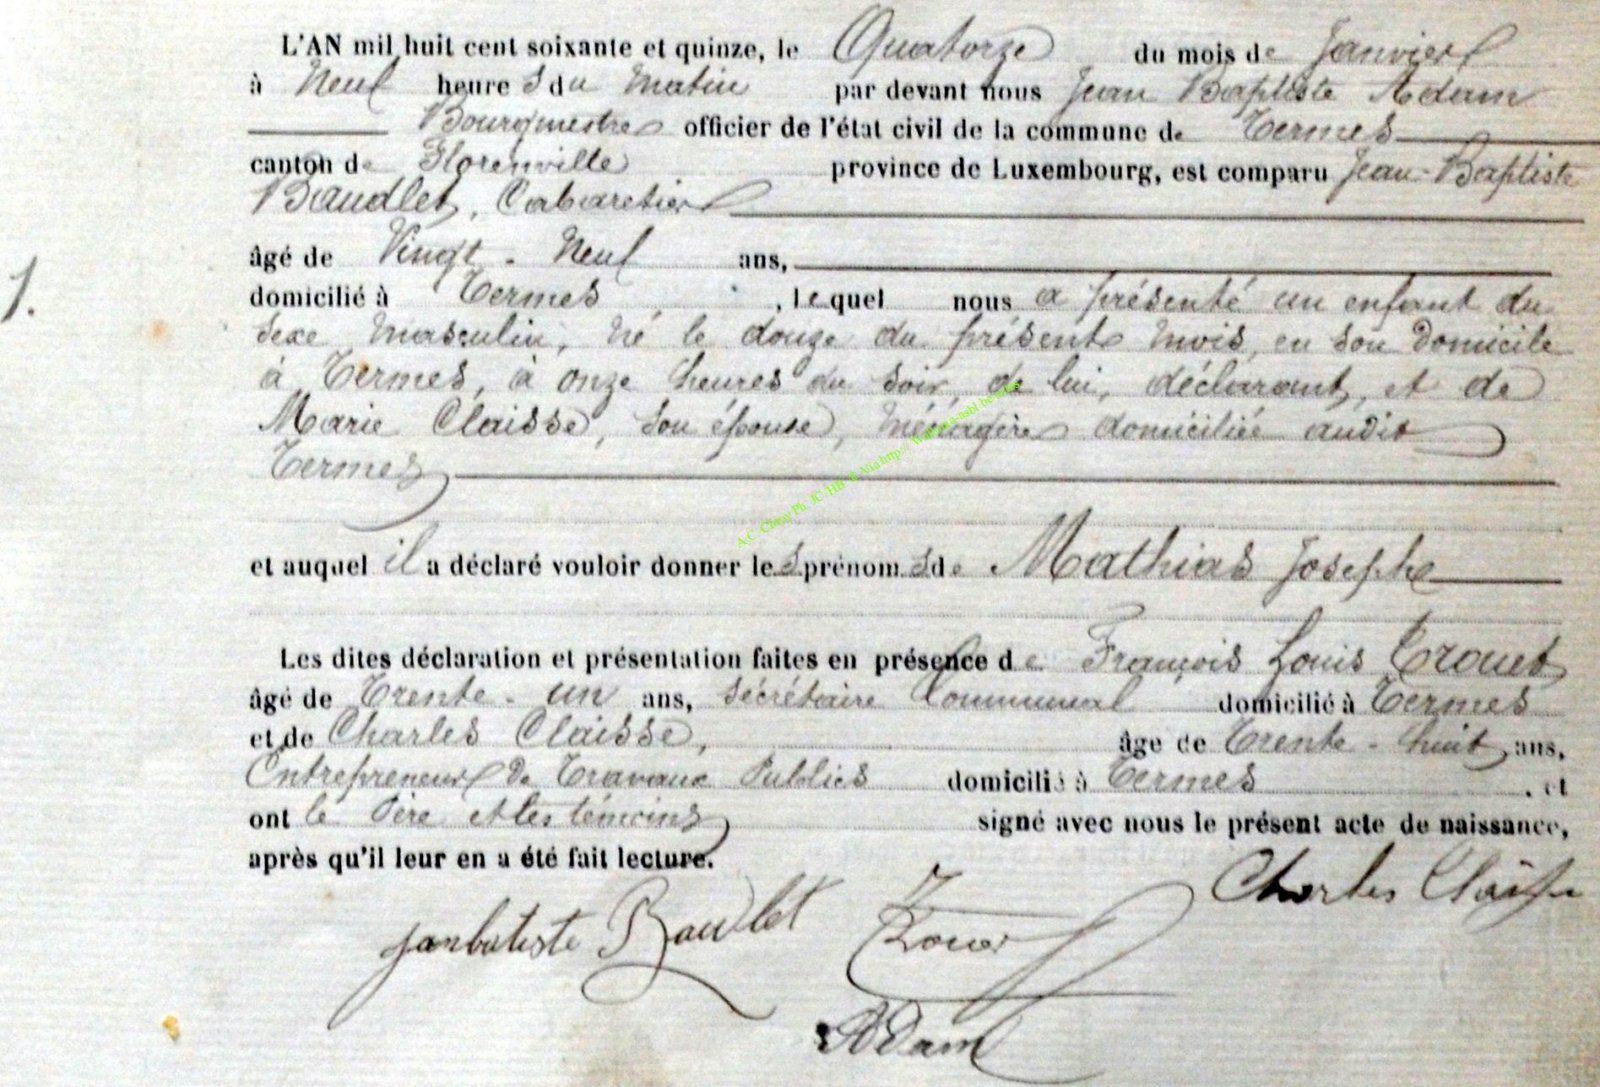 L'AN mil huit cent soixante et quinze, le Quatorze du mois de Janvier
à Neuf heures du Matin par devant nous Jean Baptiste Adam
Bourgmestre officier de l'état civil de la commune de Termes
canton de Florenville province de Luxembourg, est comparu Jean-Baptiste
Baudlet, Cabaretier
âgé de Vingt-Neuf ans,
1.
domicilié à Termes, lequel nous a présenté un enfant du
sexe masculin, né le douze du présent mois, en son domicile
à Termes, à onze heures du soir, de lui, déclarant, et de
Marie Claisse, son épouse, ménagère domiciliée audit
Termes
et auquel il a déclaré vouloir donner les prénoms de Mathias Joseph
Les dites déclaration et présentation faites en présence de François Louis Trouet
âgé de Trente-un ans, Secrétaire Communal domicilié à Termes
et de Charles Claisse, âge de Trente-huit ans,
Entrepreneur de Travaux Publics domicilié à Termes, et
ont le Père et les témoins signé avec nous le présent acte de naissance,
après qu'il leur en a été fait lecture.
Charles Claisse
janbatiste Baudlet
Adam